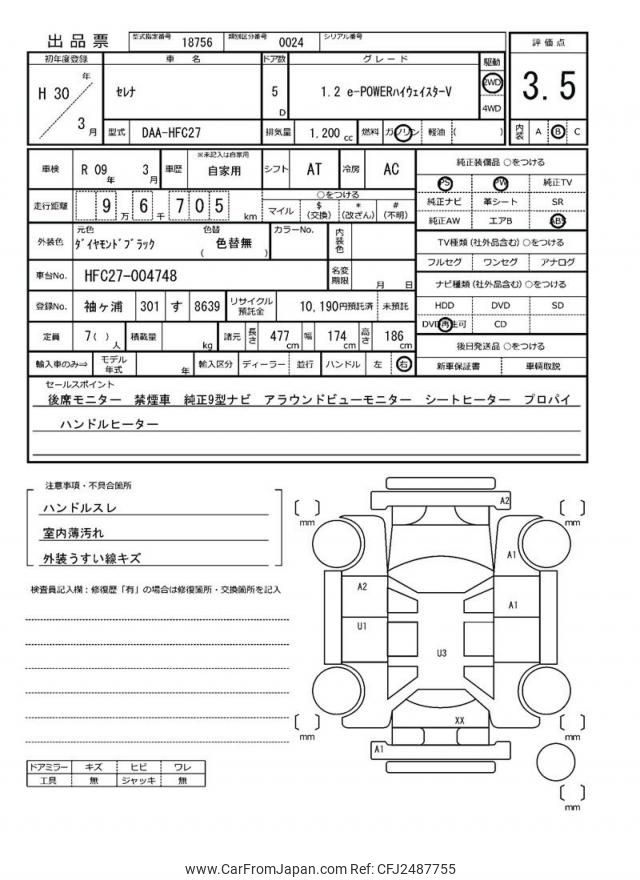 出品票 型式指定番号 18756 類別区分番号 0024 シリアル番号
初年度登録 車名 ドア数 グレード 駆動 評価点
H 30 年 3 月 セレナ 5 D 1.2 e-POWERハイウェイスターV 2WD 4WD 3.5
型式 DAA-HFC27 排気量 1,200 cc 燃料 ガソリン 軽油 ( ) 内装 A B C
車検 R 09 年 3 月 車歴 ※未記入は自家用 自家用 シフト AT 冷房 AC
走行距離 9 万 6 千 7 0 5 km ○をつける マイル $ (交換) * (改ざん) # (不明)
外装色 元色 ダイヤモンドブラック 色替 色替無 ( ) カラーNo. 内装色
車台No. HFC27-004748 名変期限 月 日
登録No. 袖ヶ浦 301 す 8639 リサイクル預託金 10,190円預託済 未預託
定員 7( ) 人 積載量 kg 諸元 長さ 477 cm 幅 174 cm 高さ 186 cm
輸入車のみ⇒ モデル年式 年 輸入区分 ディーラー 並行 ハンドル 左 右
純正装備品 ○をつける
PS PW 純正TV
純正ナビ 革シート SR
純正AW エアB ABS
TV種類 (社外品含む) ○をつける
フルセグ ワンセグ アナログ
ナビ種類 (社外品含む) ○をつける
HDD DVD SD
DVD再生可 CD
後日発送品 ○をつける
新車保証書 車輌取説
セールスポイント
後席モニター 禁煙車 純正9型ナビ アラウンドビューモニター シートヒーター プロパイ
ハンドルヒーター
注意事項・不具合箇所
ハンドルスレ
室内薄汚れ
外装うすい線キズ
検査員記入欄：修復歴「有」の場合は修復箇所・交換箇所を記入
ドアミラー キズ ヒビ ワレ
工具 無 ジャッキ 無
A2
[ ] mm
[ ] mm
A1
A2
A1
U1
U3
XX
[ ] mm
[ ] mm
A1
[ ] mm
www.CarFromJapan.com Ref: CFJ2487755